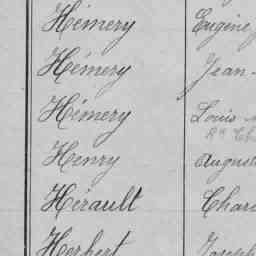 Hémery Eugène
Hémery Jean-
Hémery Louis
Henry August
Hérault Char
Herbert Joseph